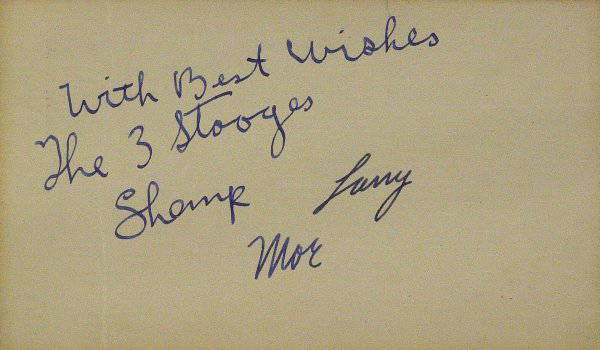 With Best Wishes
The 3 Stooges
Shemp Larry
Moe